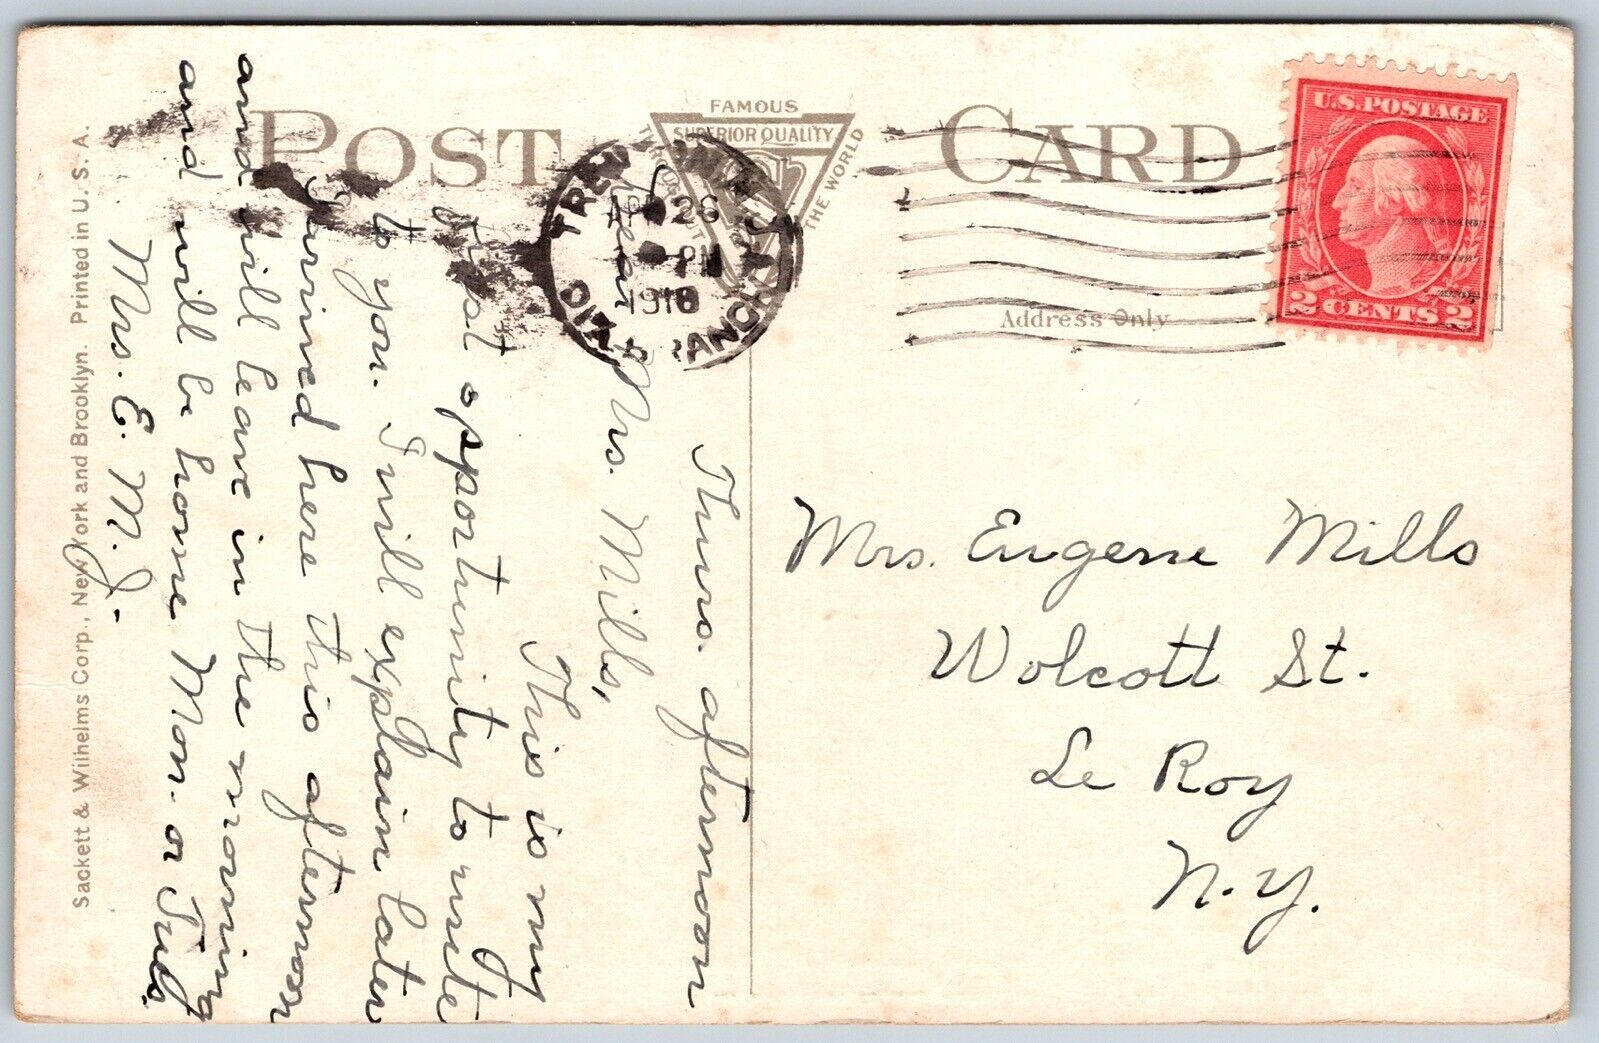 POST CARD
FAMOUS
SUPERIOR QUALITY
THROUGHOUT
THE WORLD
U.S. POSTAGE
2 CENTS 2
26
PM
1918
Address Only
Thurs. afternoon
Dear Mrs. Mills,
This is my
first opportunity to write
to you. I will explain later
Arrived here this afternoon
and will leave in the morning
and will be home Mon. or Tues.
Mrs. E. M. J.
Mrs. Eugene Mills
Wolcott St.
Le Roy
N.Y.
Sackett & Wilhelms Corp., New York and Brooklyn. Printed in U. S. A.